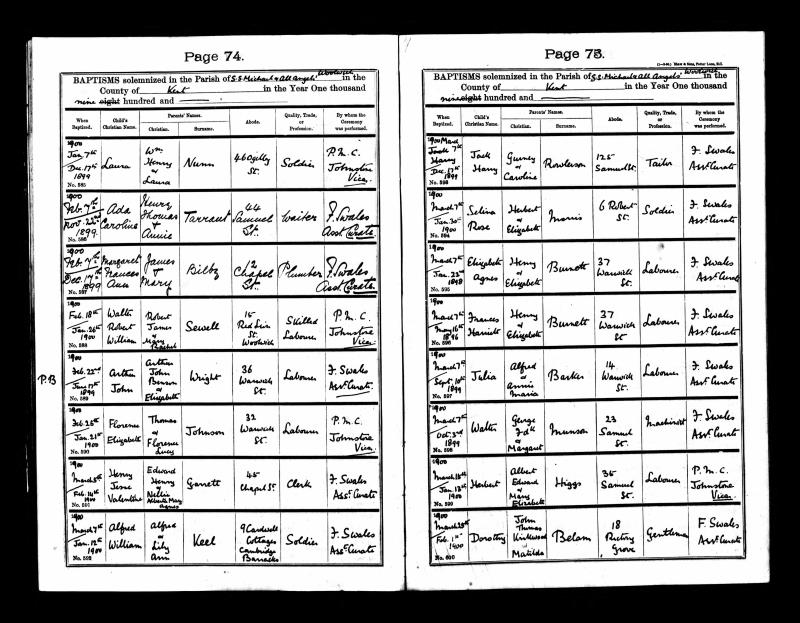 Page 74.
BAPTISMS solemnized in the Parish of S.S. Michael & All Angels' Woolwich in the
County of Kent in the Year One thousand
nine eight hundred and
When Baptized.
Child's Christian Name.
Parents' Names.
Christian.
Surname.
Abode.
Quality, Trade, or Profession.
By whom the Ceremony was performed.
1900
Jan. 7th
Dec. 17th
1899
No. 585
Laura
Wm.
Henry
&
Laura
Nunn
46 Ogilby
St.
Soldier
P. M. C.
Johnstone
Vicar.
1900
Feb. 7th
Nov. 22nd
1899
No. 586
Ada
Caroline
Henry
Thomas
&
Annie
Tarrant
44
Samuel
St.
Waiter
F. Swales
Asst. Curate.
1900
Feb. 7th
Dec. 17th
1899
No. 587
Margaret
Frances
Ann
James
&
Mary
Bilby
12
Chapel
St.
Plumber
F. Swales
Asst. Curate.
1900
Feb. 18th
Jan. 26th
1900
No. 588
Walter
Robert
William
Robert
James
&
Mary
Rachel
Sewell
15
Red Lion
St.
Woolwich
Skilled
Labourer
P. M. C.
Johnstone
Vicar.
P.B
1900
Feb. 22nd
Jan. 17th
1899
No. 589
Arthur
John
Arthur
John
Benson
&
Elizabeth
Wright
36
Warwick
St.
Labourer
F. Swales
Asst. Curate.
1900
Feb. 25th
Jan. 21st
1900
No. 590
Florence
Elizabeth
Thomas
&
Florence
Lucy
Johnson
32
Warwick
St.
Labourer
P. M. C.
Johnstone
Vicar.
1900
March 5th
Feb. 14th
1900
No. 591
Henry
Jesse
Valentine
Edward
Henry
&
Nellie
Alberta Mary
Agnes
Garrett
45
Chapel St.
Clerk
F. Swales
Asst. Curate
1900
March 7th
Jan. 12th
1900
No. 592
Alfred
William
Alfred
&
Lily
Ann
Keel
9 Cardwell
Cottages
Cambridge
Barracks
Soldier
F. Swales
Asst. Curate
Page 75.
BAPTISMS solemnized in the Parish of S.S. Michael & All Angels' Woolwich in the
County of Kent in the Year One thousand
nine eight hundred and
When Baptized.
Child's Christian Name.
Parents' Names.
Christian.
Surname.
Abode.
Quality, Trade, or Profession.
By whom the Ceremony was performed.
1900 March
7th
Dec. 17th
1899
No. 593
Jack
Harry
Gurney
&
Caroline
Rowlerson
125
Samuel St.
Tailor
F. Swales
Asst. Curate
1900
March 7th
Jan. 30th
1900
No. 594
Selina
Rose
Herbert
&
Elizabeth
Morris
6 Robert
St.
Soldier
F. Swales
Asst. Curate
1900
March 7th
Jan. 22nd
1898
No. 595
Elizabeth
Agnes
Henry
&
Elizabeth
Burnett
37
Warwick
St.
Labourer
F. Swales
Asst. Curate
1900
March 7th
May 16th
1896
No. 596
Frances
Harriett
Henry
&
Elizabeth
Burnett
37
Warwick
St.
Labourer
F. Swales
Asst. Curate
1900
March 7th
Sept. 10th
1899
No. 597
Julia
Alfred
&
Annie
Maria
Barker
14
Warwick
St.
Labourer
F. Swales
Asst. Curate
1900
March 7th
Oct. 3rd
1899
No. 598
Walter
George
Fdk
&
Margaret
Munson
23
Samuel
St.
Machinist
F. Swales
Asst. Curate
1900
March 18th
Jan. 13th
1900
No. 599
Herbert
Albert
Edward
&
Mary
Elizabeth
Higgs
35
Samuel
St.
Labourer
P. M. C.
Johnstone
Vicar.
1900
March 25th
Feb. 1st
1900
No. 600
Dorothy
John
Thomas
Kirkwood
&
Matilda
Belam
18
Rectory
Grove
Gentleman
F. Swales
Asst. Curate